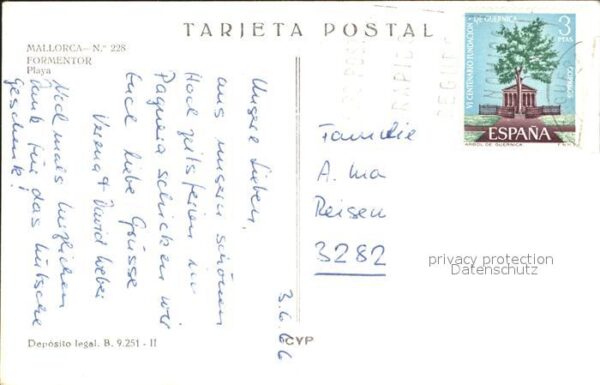 TARJETA POSTAL
MALLORCA - N.º 228
FORMENTOR
Playa
Unsere Lieben,
aus unsern schönen
Hochzeitsferien in
Paguera schicken wir
Euch liebe Grüsse
Verena + David
Nochmals herzlichen
Dank für das hübsche
Geschenk!
3.6.66
Familie
A.
Reisen
3282
VI CENTENARIO FUNDACION DE GUERNICA
3
PTAS
CORREOS
ESPAÑA
ARBOL DE GUERNICA F.N.M.T.
RAPIDO
privacy protection
Datenschutz
Depósito legal. B. 9.251 - II
CYP